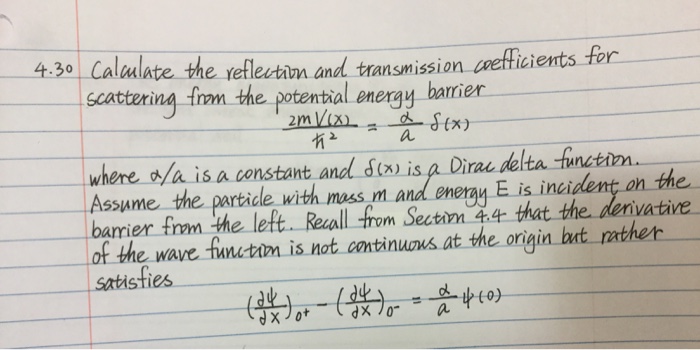 4.30 Calculate the reflection and transmission coefficients for
scattering from the potential energy barrier
2mV(x)/ħ² = α/a δ(x)
where α/a is a constant and δ(x) is a Dirac delta function.
Assume the particle with mass m and energy E is incident on the
barrier from the left. Recall from Section 4.4 that the derivative
of the wave function is not continuous at the origin but rather
satisfies
(∂ψ/∂x)₀₊ - (∂ψ/∂x)₀₋ = α/a ψ(0)